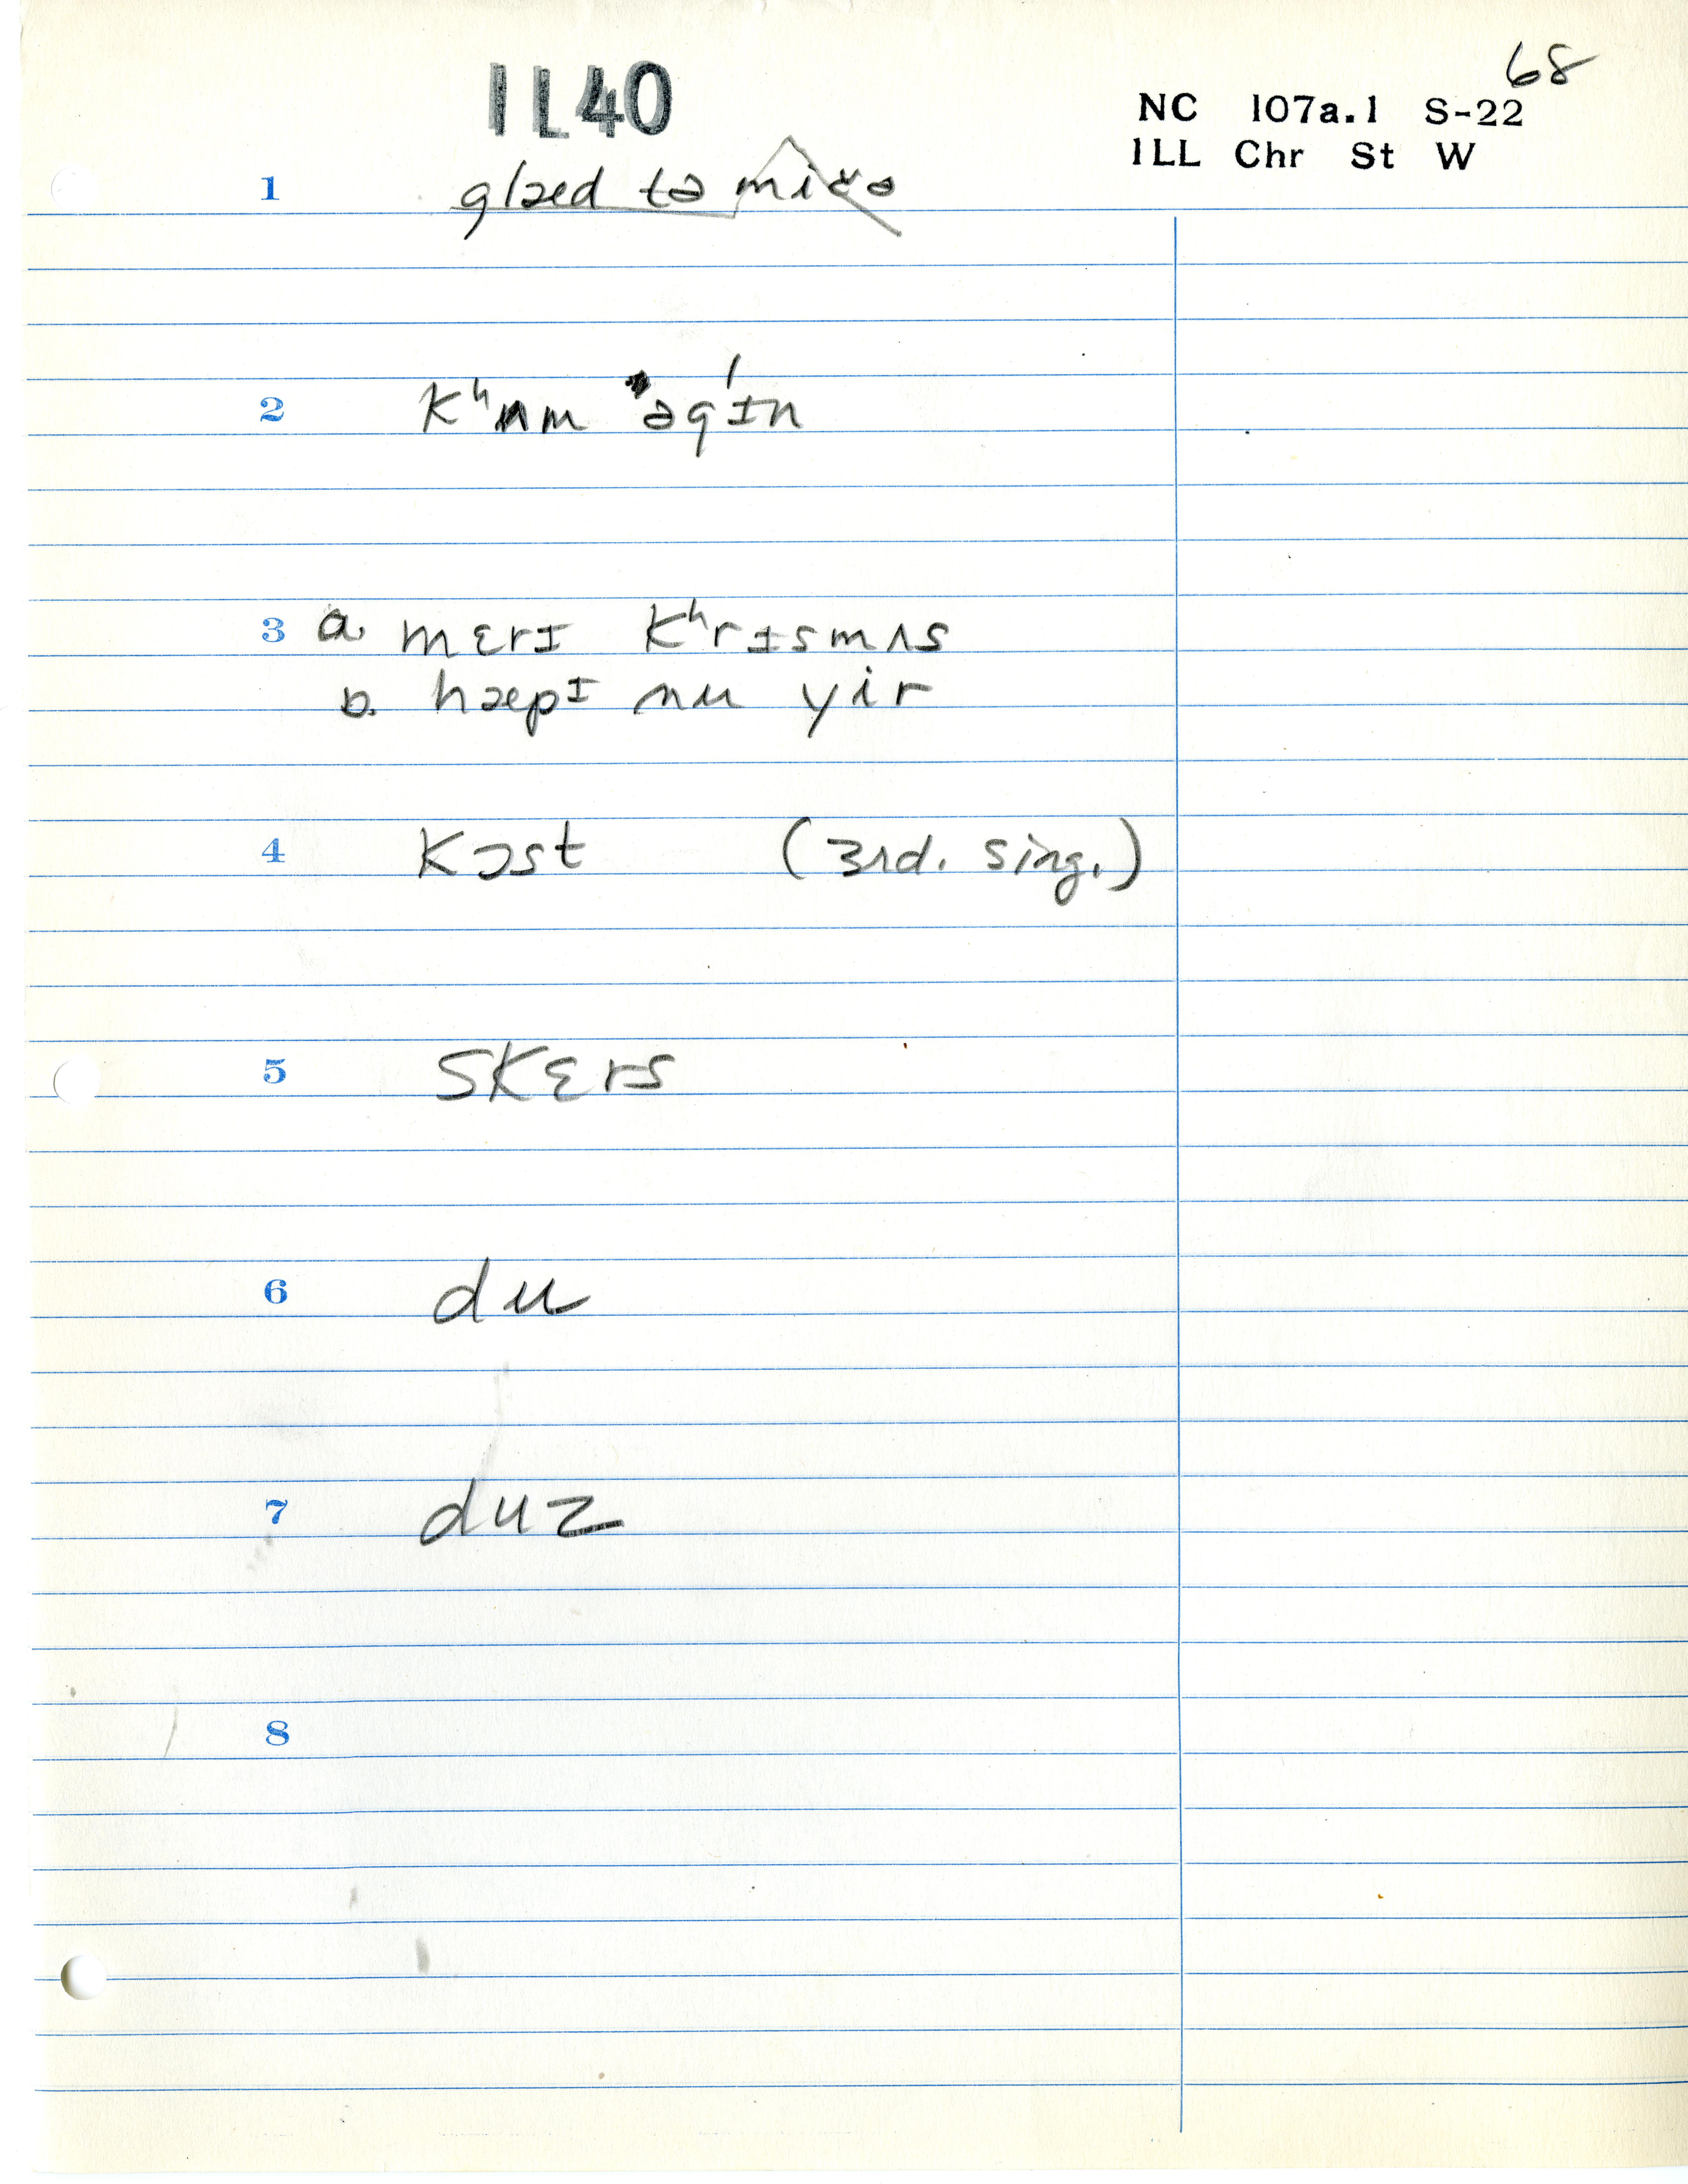 68
IL40
NC 107a.1 S-22
ILL Chr St W
1 glæd tə
2 Kʰʌm əgɪn
3 a. mɛrɪ Kʰrɪsmʌs
b. hæpɪ nu yir
4 Kɔst (3rd. sing.)
5 SKɛrs
6 du
7 duz
8